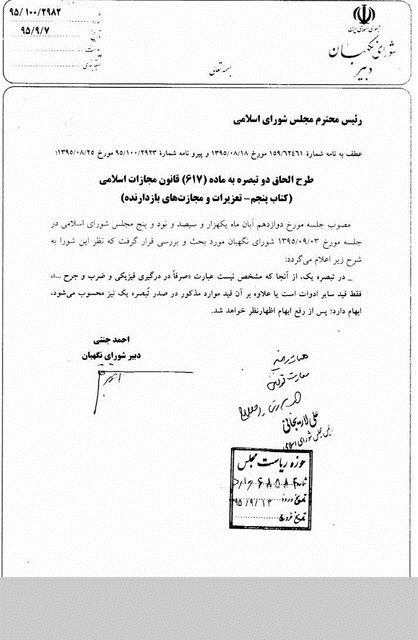 ۹۵/۱۰۰/۲۹۸۲
تاریخ ۹۵/۹/۷
پیوست
جمهوری اسلامی ایران
شورای نگهبان
دبیر
بسمه تعالی
رئیس محترم مجلس شورای اسلامی
عطف به نامه شمارهٔ ۱۵۹/۶۲۴۶۱ مورخ ۱۳۹۵/۰۸/۱۸ و پیرو نامه شمارهٔ ۹۵/۱۰۰/۲۹۲۳ مورخ ۱۳۹۵/۰۸/۲۵:
طرح الحاق دو تبصره به ماده (۶۱۷) قانون مجازات اسلامی
(کتاب پنجم- تعزیرات و مجازت‌های بازدارنده)
مصوب جلسه مورخ دوازدهم آبان ماه یکهزار و سیصد و نود و پنج مجلس شورای اسلامی در
جلسه مورخ ۱۳۹۵/۰۹/۰۳ شورای نگهبان مورد بحث و بررسی قرار گرفت که نظر این شورا به
شرح زیر اعلام می‌گردد:
_ در تبصره یک، از آنجا که مشخص نیست عبارت «صرفاً در درگیری فیزیکی و ضرب و جرح ...»،
فقط قید سایر ادوات است یا علاوه بر آن قید موارد مذکور در صدر تبصره یک نیز محسوب می‌شود،
ابهام دارد؛ پس از رفع ابهام اظهارنظر خواهد شد.
احمد جنتی
دبیر شورای نگهبان
علی لاریجانی
رئیس مجلس شورای اسلامی
حوزه ریاست مجلس
شماره
تاریخ ورود ۹۵/۹/۱۳
تاریخ خروج